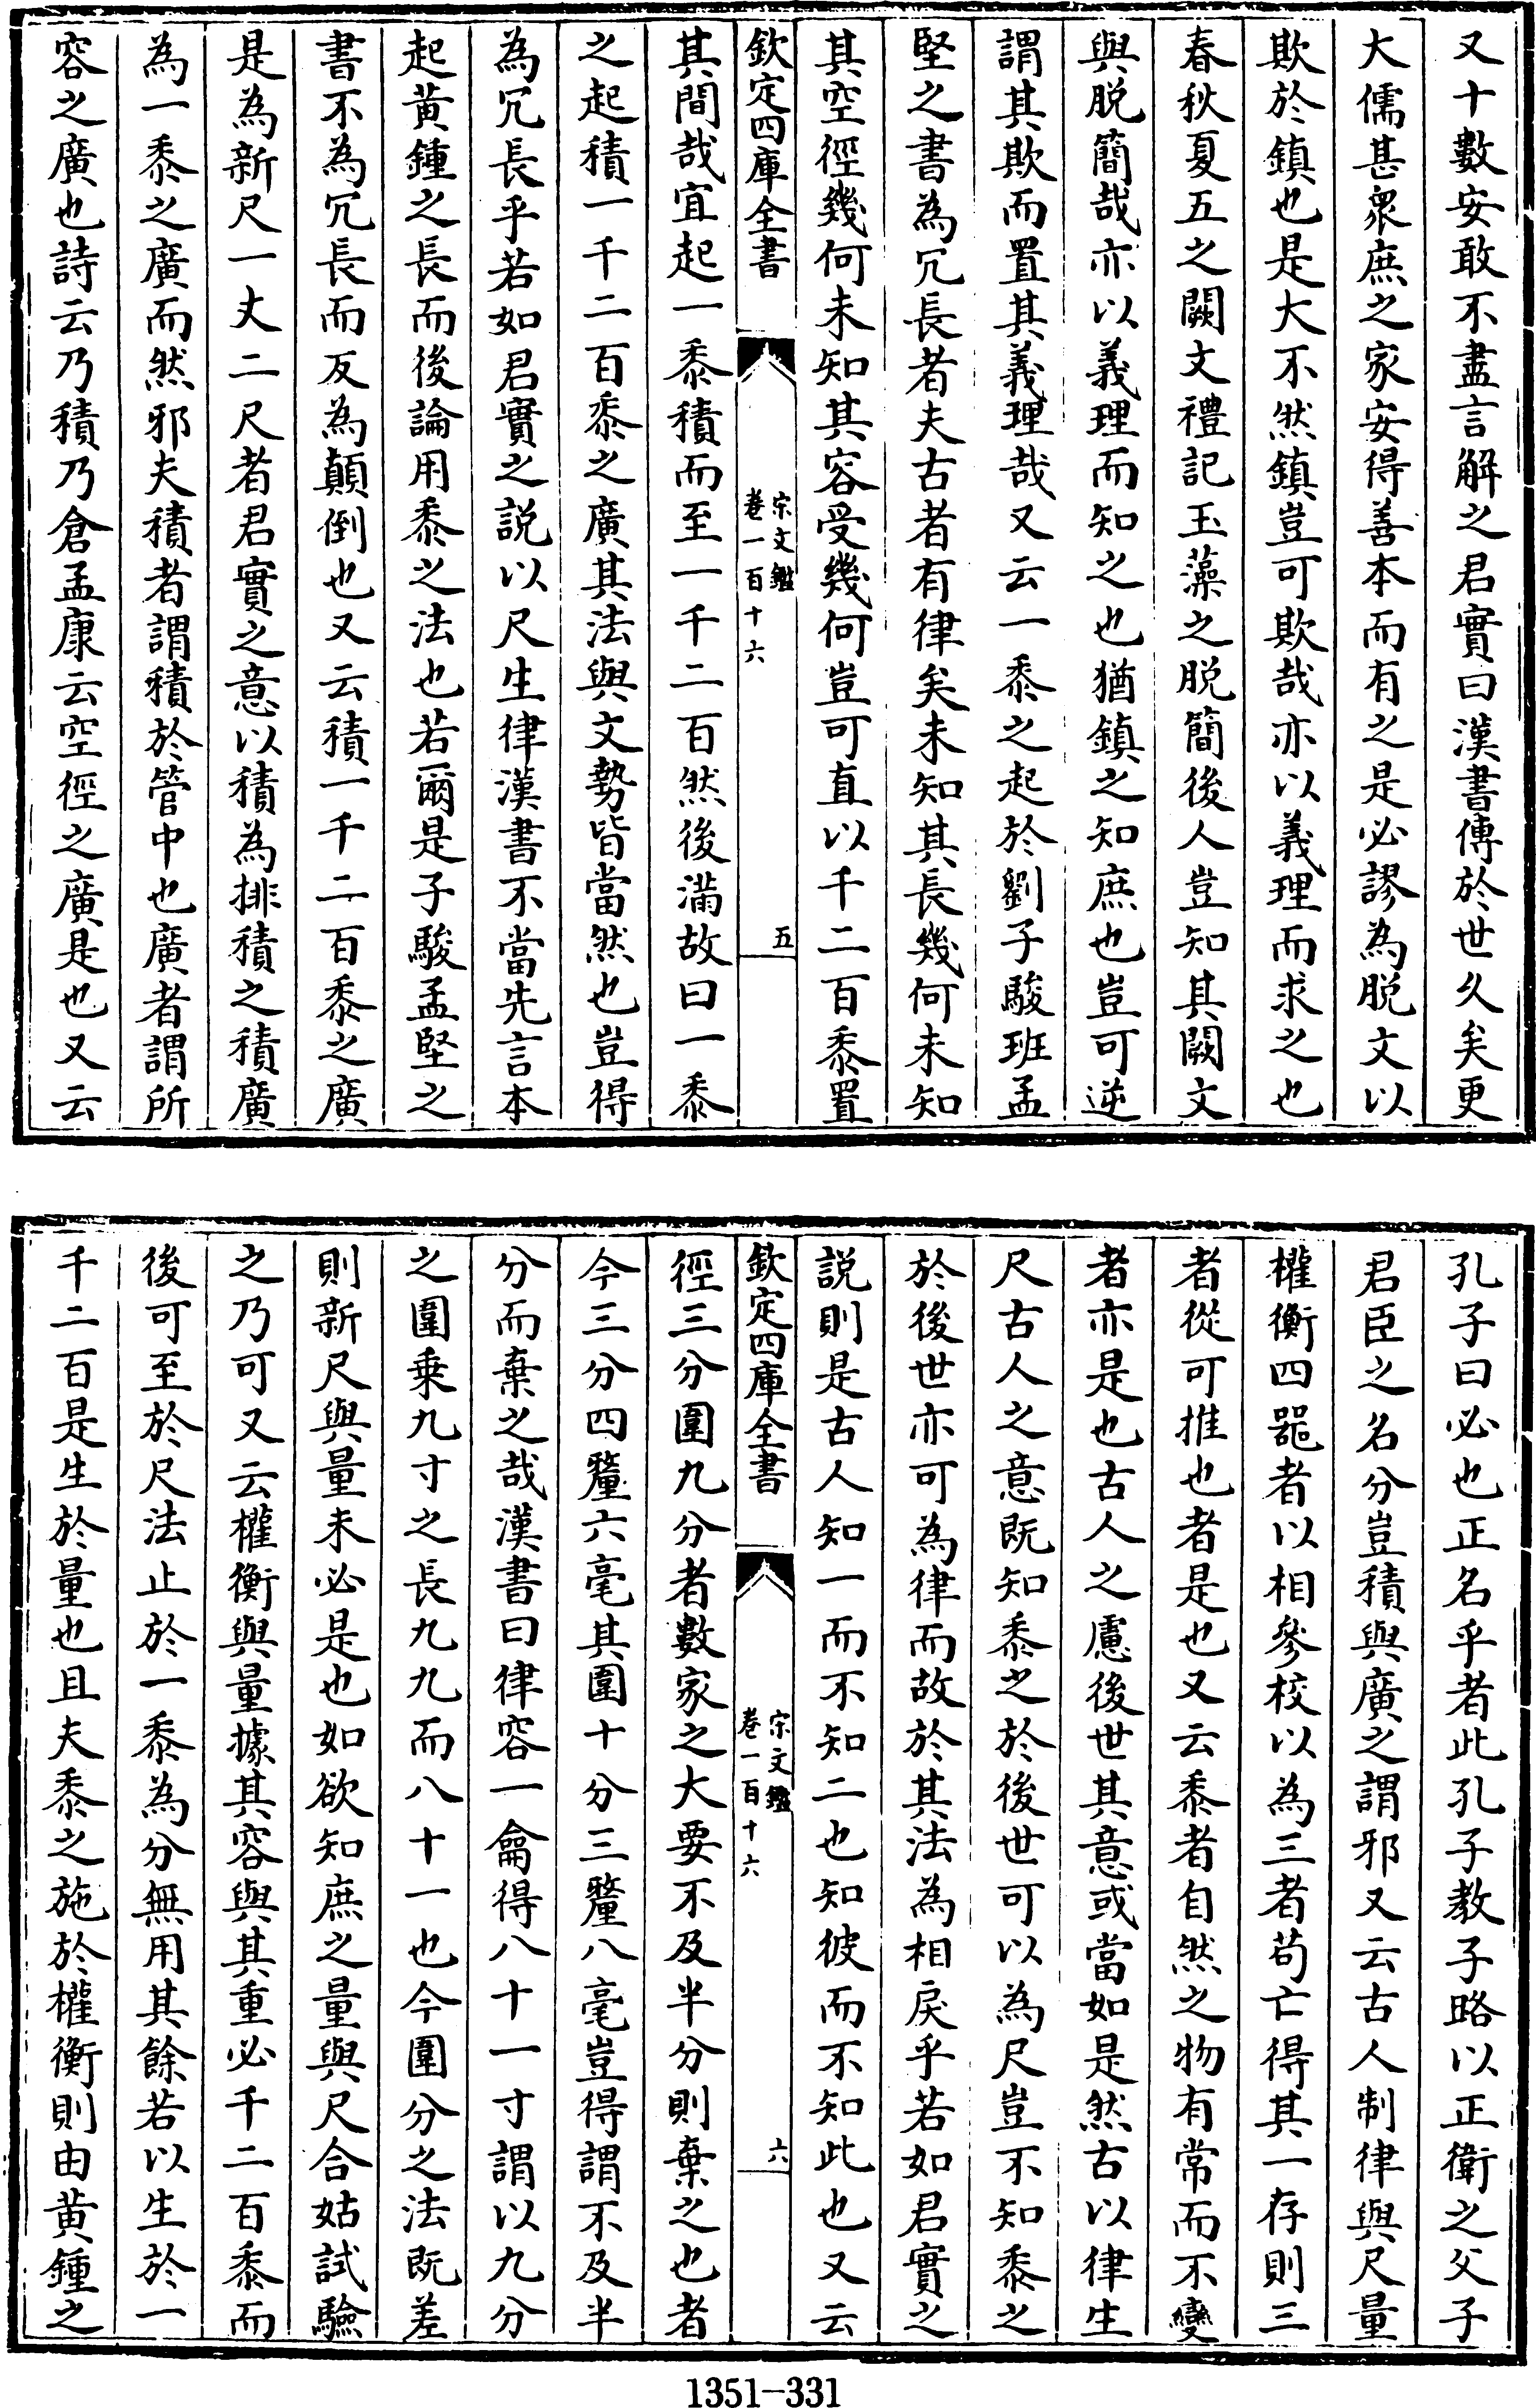 又十數安敢不盡言解之君實曰漢書傳於世久矣更
大儒甚衆庶之家安得善本而有之是必謬為脱文以
欺於鎮也是大不然鎮豈可欺哉亦以義理而求之也
春秋夏五之闕文禮記玉藻之脱簡後人豈知其闕文
與脱簡哉亦以義理而知之也猶鎮之知庶也豈可逆
謂其欺而置其義理哉又云一黍之起於劉子駿班孟
堅之書為冗長者夫古者有律矣未知其長幾何未知
其空徑幾何未知其容受幾何豈可直以千二百黍置
欽定四庫全書
宋文鑑
卷一百十六
五
其間哉宜起一黍積而至一千二百然後滿故曰一黍
之起積一千二百黍之廣其法與文勢皆當然也豈得
為冗長乎若如君實之説以尺生律漢書不當先言本
起黄鍾之長而後論用黍之法也若爾是子駿孟堅之
書不為冗長而反為顛倒也又云積一千二百黍之廣
是為新尺一丈二尺者君實之意以積為排積之積廣
為一黍之廣而然邪夫積者謂積於管中也廣者謂所
容之廣也詩云乃積乃倉孟康云空徑之廣是也又云
孔子曰必也正名乎者此孔子教子路以正衛之父子
君臣之名分豈積與廣之謂邪又云古人制律與尺量
權衡四噐者以相參校以為三者茍亡得其一存則三
者從可推也者是也又云黍者自然之物有常而不變
者亦是也古人之慮後世其意或當如是然古以律生
尺古人之意既知黍之於後世可以為尺豈不知黍之
於後世亦可為律而故於其法為相戾乎若如君實之
説則是古人知一而不知二也知彼而不知此也又云
欽定四庫全書
宋文鑑
卷一百十六
六
徑三分圍九分者數家之大要不及半分則棄之也者
今三分四釐六毫其圍十分三釐八毫豈得謂不及半
分而棄之哉漢書曰律容一龠得八十一寸謂以九分
之圍乗九寸之長九九而八十一也今圍分之法既差
則新尺與量未必是也如欲知庶之量與尺合姑試驗
之乃可又云權衡與量據其容與其重必千二百黍而
後可至於尺法止於一黍為分無用其餘若以生於一
千二百是生於量也且夫黍之施於權衡則由黄鍾之
1351-331